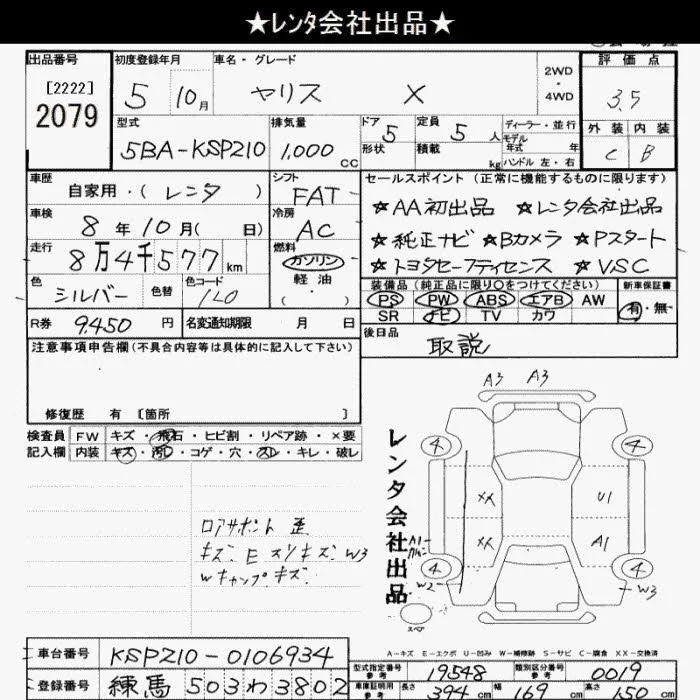 ★レンタ会社出品★
出品番号 初度登録年月 車名・グレード 2WD・4WD 評価点
[2222] 2079 5 10月 ヤリス X 3.5
型式 排気量 ドア 5 定員 5人 ディーラー・並行 外装 内装
5BA-KSP210 1,000cc 形状 積載 kg モデル年式 年 C B
ハンドル 左・右
車歴 自家用・(レンタ) シフト FAT セールスポイント (正常に機能するものに限ります)
車検 8年10月(日) 冷房 AC ★AA初出品 ★レンタ会社出品
走行 8万4千577km 燃料 ガソリン 軽油 ( ) ★純正ナビ ★Bカメラ ★Pスタート
★トヨタセーフティセンス ★VSC
色 シルバー 色替 色コード 1L0 装備品(純正品に限り○をつけてください) 新車保証書
PS PW ABS エアB AW 有・無
SR ナビ TV カワ
R券 9,450円 名変通知期限 月 日 後日品 取説
注意事項申告欄(不具合内容等は具体的に記入して下さい)
修復歴 有 [箇所 ]
検査員記入欄 FW キズ・飛石・ヒビ割・リペア跡・×要
内装 キズ・汚レ・コゲ・穴・スレ・キレ・破レ
A3 A3
4 4
XX U1
XX A1
A1
4 4
W2 W3
スペア
レンタ会社出品
ロアサポート 歪
キズ. E スリキズ. W3
Wキャップキズ
A-キズ E-エクボ U-凹み W-補修跡 S-サビ C-腐食 XX-交換済
車台番号 KSP210-0106934
型式指定番号 参考 19548 類別区分番号 参考 0019
登録番号 練馬 503わ3802
車庫証明用 参考 長さ 394cm 幅 169cm 高さ 150cm